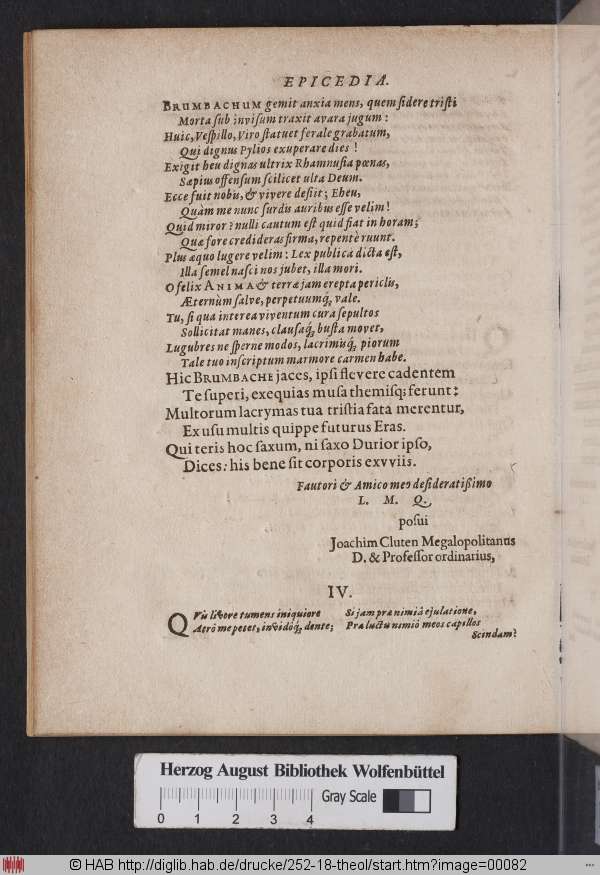 EPICEDIA.
BRUMBACHUM gemit anxia mens, quem sidere tristi
Morta sub invisum traxit avara jugum:
Huic, Vespillo, Viro statuet ferale grabatum,
Qui dignus Pylios exuperare dies!
Exigit heu dignas ultrix Rhamnusia pœnas,
Sæpius offensum scilicet ulta Deum.
Ecce fuit nobis, & vivere desiit; Eheu,
Quam me nunc surdis auribus esse velim!
Quid miror? nulli cautum est quid fiat in horam;
Quæ fore credideras firma, repentè ruunt.
Plus æquo lugere velim: Lex publica dicta est,
Illa semel nasci nos jubet, illa mori.
O felix ANIMA & terræ jam erepta periclis,
Æternùm salve, perpetuumq́, vale.
Tu, si qua interea viventum cura sepultos
Sollicitat manes, clausaq́, busta movet,
Lugubres ne sperne modos, lacrimisq́, piorum
Tale tuo inscriptum marmore carmen habe.
Hic BRUMBACHE jaces, ipsi flevere cadentem
Te superi, exequias musa themisq; ferunt:
Multorum lacrymas tua tristia fata merentur,
Ex usu multis quippe futurus Eras.
Qui teris hoc saxum, ni saxo Durior ipso,
Dices: his bene sit corporis exvviis.
Fautori & Amico meo desideratissimo
L. M. Q.
posui
Joachim Cluten Megalopolitanus
D. & Professor ordinarius,
IV.
QVis livore tumens iniquiore
Atrô me petet, invidôq́, dente;
Si jam præ nimiâ ejulatione,
Præ luctu nimiô meos capillos
Scindam?
Herzog August Bibliothek Wolfenbüttel
0 1 2 3 4 Gray Scale
© HAB http://diglib.hab.de/drucke/252-18-theol/start.htm?image=00082